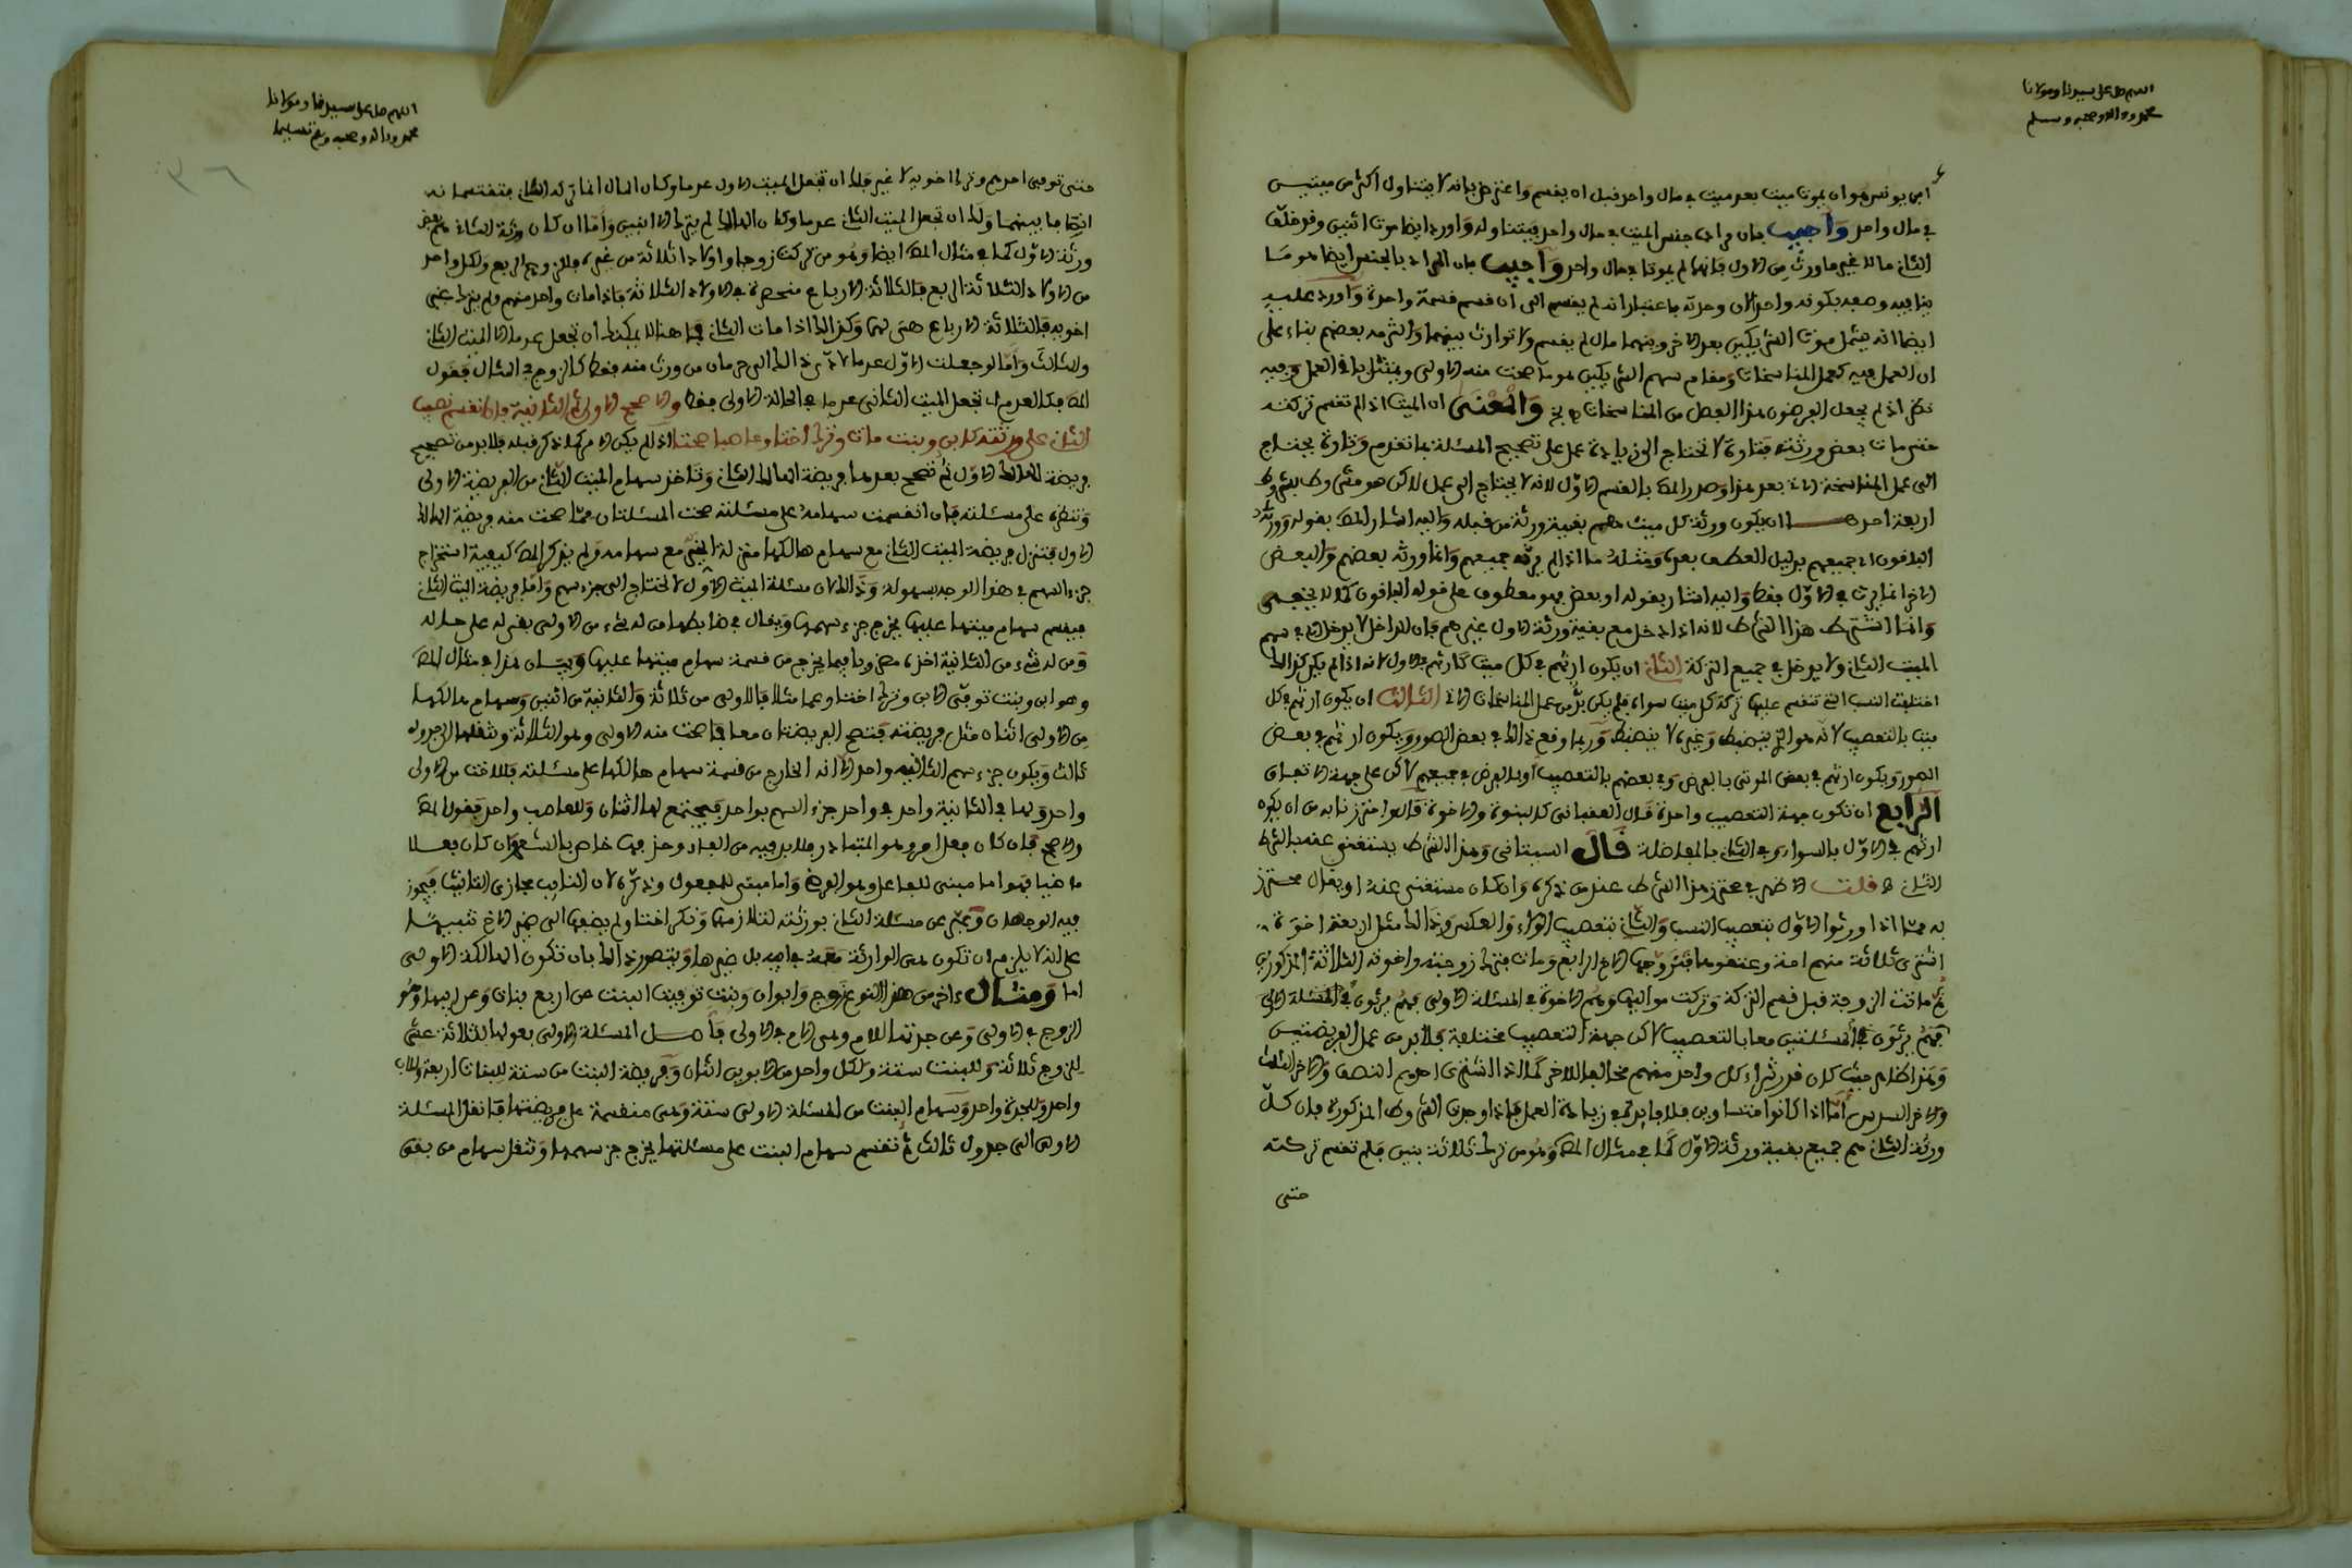 اللهم صل على سيدنا ومولانا
محمد وءاله وصحبه وسلم
ابن يونس هو ان يموت ميت بعد ميت في مال واحد قبل ان يقسم واعترض بانه لا يتناول اكثر من ميتين
في مال واحد وأجيب بان مراده جنس الميت في مال واحد فيتناوله وأورد ايضا موت اثنين وقد خلف
الثاني مالا غير ما ورث من الاول فانهما لم يموتا في مال واحد وأجيب بان المراد بالجنس ايضا هو
ايضا انه يشمل موت الشريكين بعد الاخر وبينهما مال لم يقسم ولا توارث بينهما والتزمه بعضهم بناء على
ان العمل فيه كعمل المناسخات ومقام سهم الشريكين هو ما صحت منه الاولى
نظر اذ لم يجعل الفرضيون هذا العمل من المناسخات والمعنى ان الميت اذا لم تقسم تركته
حتى مات بعض ورثته فتارة لا تحتاج الى زيادة عمل على تصحيح المسئلة بما تقدم وتارة يحتاج
الى عمل المناسخة الاتي بعد هذا وصدر المص بالقسم الاول لانه لا يحتاج الى عمل لاكن هو مشروط بشروط
اربعة احدها ان يكون ورثة كل ميت هم بقية ورثة من قبله واليه اشار المص بقوله وورثه
الباقون اي جميعهم بدليل العطف بعده ومثله ما اذا لم يرثه جميعهم وانما ورثه بعضهم والبعض
الاخر انما يرث في الاول فقط واليه اشار بقوله او بعض فهو معطوف على قوله الباقون
وانما اشترط هذا الشرط لانه اذا دخل مع بقية ورثة الاول غيرهم فان الداخل لا يدخل الا في سهم
الميت الثاني ولا يدخل في جميع التركة الثاني ان يكون ارثهم في كل ميت كارثهم في الاول لانه اذا لم يكن كذالك
اختلفت النسب التي تقسم عليها تركة كل ميت سواء فلم يكن بد من عمل المناسخات الاتي الثالث ان يكون ارثهم في كل
ميت بالتعصيب لانه هو الذي ينضبط وغيره لا ينضبط وربما وقع ذالك في بعض الصور ويكون ارثهم في بعض
الصور ويكون ارثهم في بعض الموتى بالفرض وفي بعضهم بالتعصيب أو بالفرض في جميعهم لاكن على جهة الاتفاق
الرابع ان تكون جهة التعصيب واحدة قال العقباني كالبنوة والاخوة قالوا احترزنا به من ان يكون
ارثهم في الاول بالسواء وفي الثاني بالمفاضلة قال السيتاني وهذا الشرط يستغنى عنه بالشرط
الثاني قلت الاظهر في محترز هذا الشرط عند من ذكره وان كان مستغنى عنه او يقال محترز
به مما اذا ورثوا الاول بتعصيب النسب والثاني بتعصيب الولاء والعكس وذالك مثل اربعة اخوة
اشترى ثلاثة منهم امة وعتقوها فتزوجها الاخ الرابع ومات فترك زوجته واخوته الثلاثة المذكورين
ثم ماتت الزوجة قبل قسم التركة وتركت مواليها وهم الاخوة في المسئلة الاولى
فهم يرثون في المسئلتين معا بالتعصيب لاكن جهة التعصيب مختلفة فلا بد من عمل الفريضتين
وهذا ظاهر حيث كان قدر شراء كل واحد منهم مخالفا للاخر كما اذا اشترى احدهم النصف والاخر الثلث
والاخر السدس أما اذا كانوا متساوين فلا فايدة في زيادة العمل فاذا وجدت الشروط المذكورة فان كان
ورثة الثاني هم جميع بقية ورثة الاول كما في مثال المص وهو من ترك ثلاثة بنين فلم تقسم تركته
حتى
اللهم صل على سيدنا ومولانا
محمد وءاله وصحبه وسلم تسليما
حتى توفي احدهم وترك اخويه لا غير فلك ان تجعل الميت الاول عدما وكان المال انما تركه الثاني فتقسمانه
انصافا بينهما ولك ان تجعل الميت الثاني عدما وكان الهالك لم يترك الا اثنين وأما ان كان ورثة الثاني هم بعض
ورثة الاول كما في مثال المص ايضا وهو من تركت زوجا واولادا ثلاثة من غيره فللزوج الربع ولكل واحد
من الاولاد الثلاثة الربع فالثلاثة الارباع منحصرة في الاولاد الثلاثة فاذا مات واحد منهم ولم يترك غير
اخويه فالثلاثة الارباع هي لهما وكذالك اذا مات الثاني فها هنا لا يمكنك ان تجعل عدما الا الميت الثاني
والثالث وأما لو جعلت الاول عدما لادى ذالك الى حرمان من ورث منه فقط كالزوج في المثال فقول
المص فكالعدم اي تجعل الميت الثاني عدما في الحالة الاولى فقط والا صحح الاولى ثم الثانية فان انقسم نصيب
الثاني على ورثته كابن وبنت مات وترك اختا وعاصبا صحتا اذا لم يكن الامر كما ذكر قبله فلا بد من تصحيح
فريضة الهالك الاول ثم تصحح بعدها فريضة الهالك الثاني وتاخذ سهام الميت الثاني من الفريضة الاولى
وتنظره على مسئلته فان انقسمت سهامه على مسئلته صحت المسئلتان مما صحت منه فريضة الهالك
الاول فتنزل فريضة الميت الثاني مع سهام هالكها منزلة الحيز مع سهامه ولم يذكر المص كيفية استخراج
جزء السهم في هذا الوجه بسهولة وذالك لان مسئلة الميت الاول لا تحتاج الى جزء سهم وأما فريضة الميت الثاني
فيقسم سهام ميتها عليها يخرج جزء سهمها ويقال في ضابطها من له شيء من الاولى بقي له على حاله
ومن له شيء من الثانية اخذه مضروبا فيما يخرج من قسمة سهام ميتها عليها وبيان هذا في مثال المص
وهو ابن وبنت توفي الابن وترك اختا وعما مثلا فالاولى من ثلاثة والثانية من اثنين وسهام هالكها
من الاولى اثنان مثل فريضته فتصح الفريضتان معا مما صحت منه الاولى وهو الثلاثة وتنقلها الى جدول
ثالث ويكون جزء سهم الثانية واحدا لانه الخارج من قسمة سهام هالكها على مسئلته فللاخت من الاولى
واحد ولها في الثانية واحد في واحد جزء السهم بواحد فيجتمع لها اثنان وللعاصب واحد فقول المص
والا صحح فان كان فعل امر وهو المتبادر فلا بد فيه من الفاء وحذفها خاص بالشعر وان كان فعلا
ماضيا فهو اما مبني للفاعل وهو الفرضي وأما مبني للمفعول وذكره لان النايب مجازي التانيث فيجوز
فيه الوجهان وعبر عن مسئلة الثاني بورثته لتلازمها وذكر اختا ولم يضفها الى ضمير الاخ تنبيها
على انه لا يلزم ان تكون هي الوارثة معه في ابيه بل غيرها ويتصور ذالك بان تكون الهالكة الاولى
اما ومثال ءاخر من هذا النوع زوج وابوان وبنت توفيت البنت عن اربع بنات وعن ابيها وهو
الزوج في الاولى وعن جدتها للام وهي الام في الاولى فأصل المسئلة الاولى بعولها ثلاثة عشر
للزوج ثلاثة وللبنت ستة ولكل واحد من الابوين اثنان وفريضة البنت من ستة للبنات اربعة وللاب
واحد وللجدة واحد وسهام البنت من المسئلة الاولى ستة وهي منقسمة على فريضتها فانقل المسئلة
الاولى الى جدول ثالث ثم تقسم سهام البنت على مسئلتها يخرج جزء سهمها وتنقل سهام من بقي